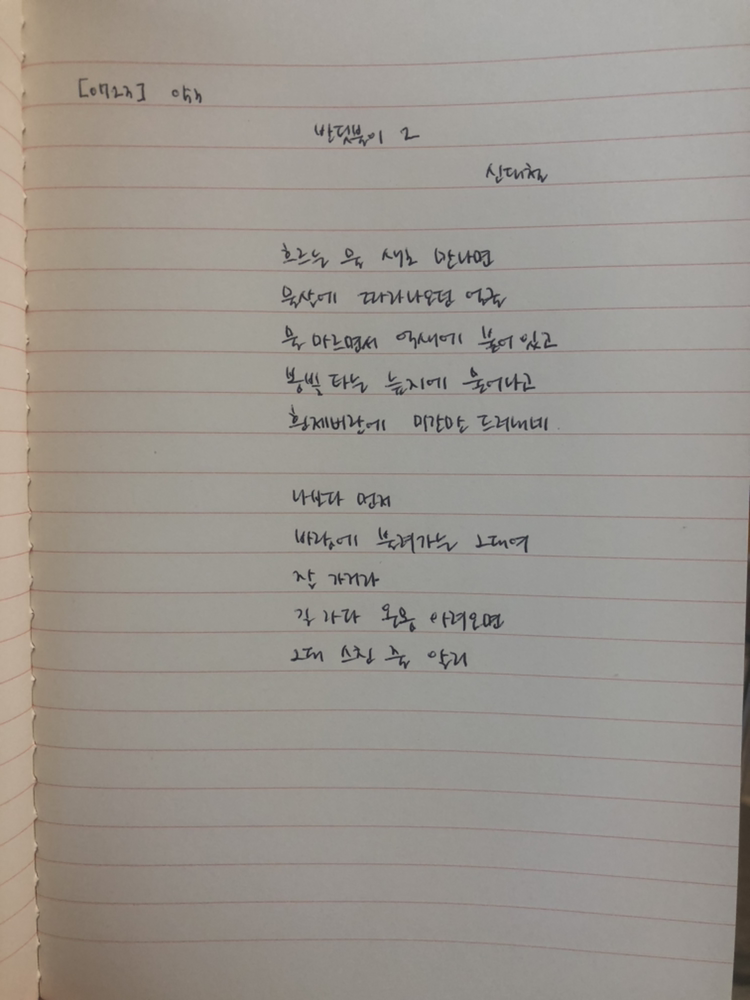 반딧불이 2
신대철
흐르는 물 새로 만나면
물살에 따라나오던 얼굴
물 마르면서 억새에 붙어 있고
봉빛 타는 늪지에 물어나고
황제버판에 미간만 드러내네.
나보다 먼저
바람에 불려가는 그대여
잘 가거라
길 가다 온몸 아려오면
그대 스친 줄 알리